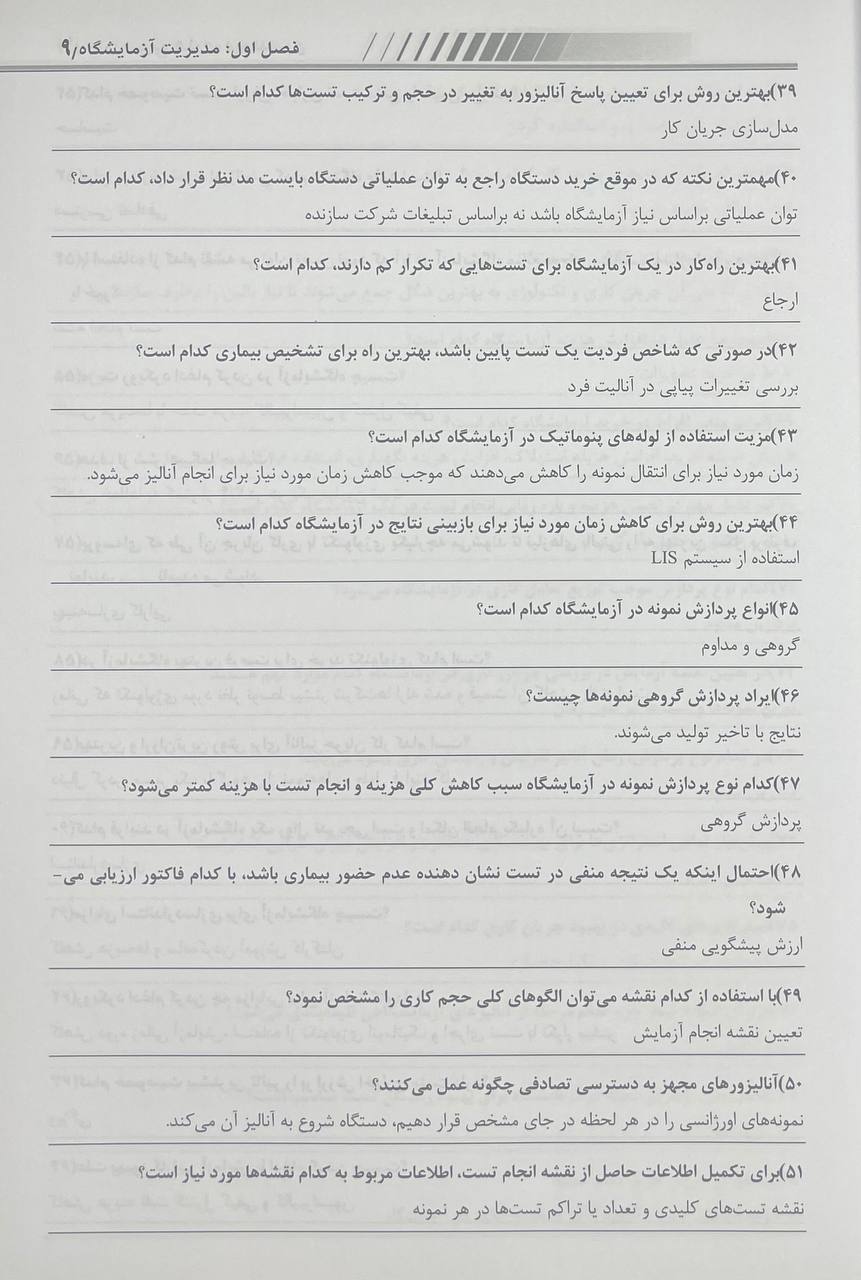 فصل اول: مدیریت آزمایشگاه/۹
۳۹)بهترین روش برای تعیین پاسخ آنالیزور به تغییر در حجم و ترکیب تست‌ها کدام است؟
مدل‌سازی جریان کار
۴۰)مهمترین نکته که در موقع خرید دستگاه راجع به توان عملیاتی دستگاه بایست مد نظر قرار داد، کدام است؟
توان عملیاتی براساس نیاز آزمایشگاه باشد نه براساس تبلیغات شرکت سازنده
۴۱)بهترین راه‌کار در یک آزمایشگاه برای تست‌هایی که تکرار کم دارند، کدام است؟
ارجاع
۴۲)در صورتی که شاخص فردیت یک تست پایین باشد، بهترین راه برای تشخیص بیماری کدام است؟
بررسی تغییرات پیاپی در آنالیت فرد
۴۳)مزیت استفاده از لوله‌های پنوماتیک در آزمایشگاه کدام است؟
زمان مورد نیاز برای انتقال نمونه را کاهش می‌دهند که موجب کاهش زمان مورد نیاز برای انجام آنالیز می‌شود.
۴۴)بهترین روش برای کاهش زمان مورد نیاز برای بازبینی نتایج در آزمایشگاه کدام است؟
استفاده از سیستم LIS
۴۵)انواع پردازش نمونه در آزمایشگاه کدام است؟
گروهی و مداوم
۴۶)ایراد پردازش گروهی نمونه‌ها چیست؟
نتایج با تاخیر تولید می‌شوند.
۴۷)کدام نوع پردازش نمونه در آزمایشگاه سبب کاهش کلی هزینه و انجام تست با هزینه کمتر می‌شود؟
پردازش گروهی
۴۸)احتمال اینکه یک نتیجه منفی در تست نشان دهنده عدم حضور بیماری باشد، با کدام فاکتور ارزیابی می-
شود؟
ارزش پیشگویی منفی
۴۹)با استفاده از کدام نقشه می‌توان الگوهای کلی حجم کاری را مشخص نمود؟
تعیین نقشه انجام آزمایش
۵۰)آنالیزورهای مجهز به دسترسی تصادفی چگونه عمل می‌کنند؟
نمونه‌های اورژانسی را در هر لحظه در جای مشخص قرار دهیم، دستگاه شروع به آنالیز آن می‌کند.
۵۱)برای تکمیل اطلاعات حاصل از نقشه انجام تست، اطلاعات مربوط به کدام نقشه‌ها مورد نیاز است؟
نقشه تست‌های کلیدی و تعداد یا تراکم تست‌ها در هر نمونه